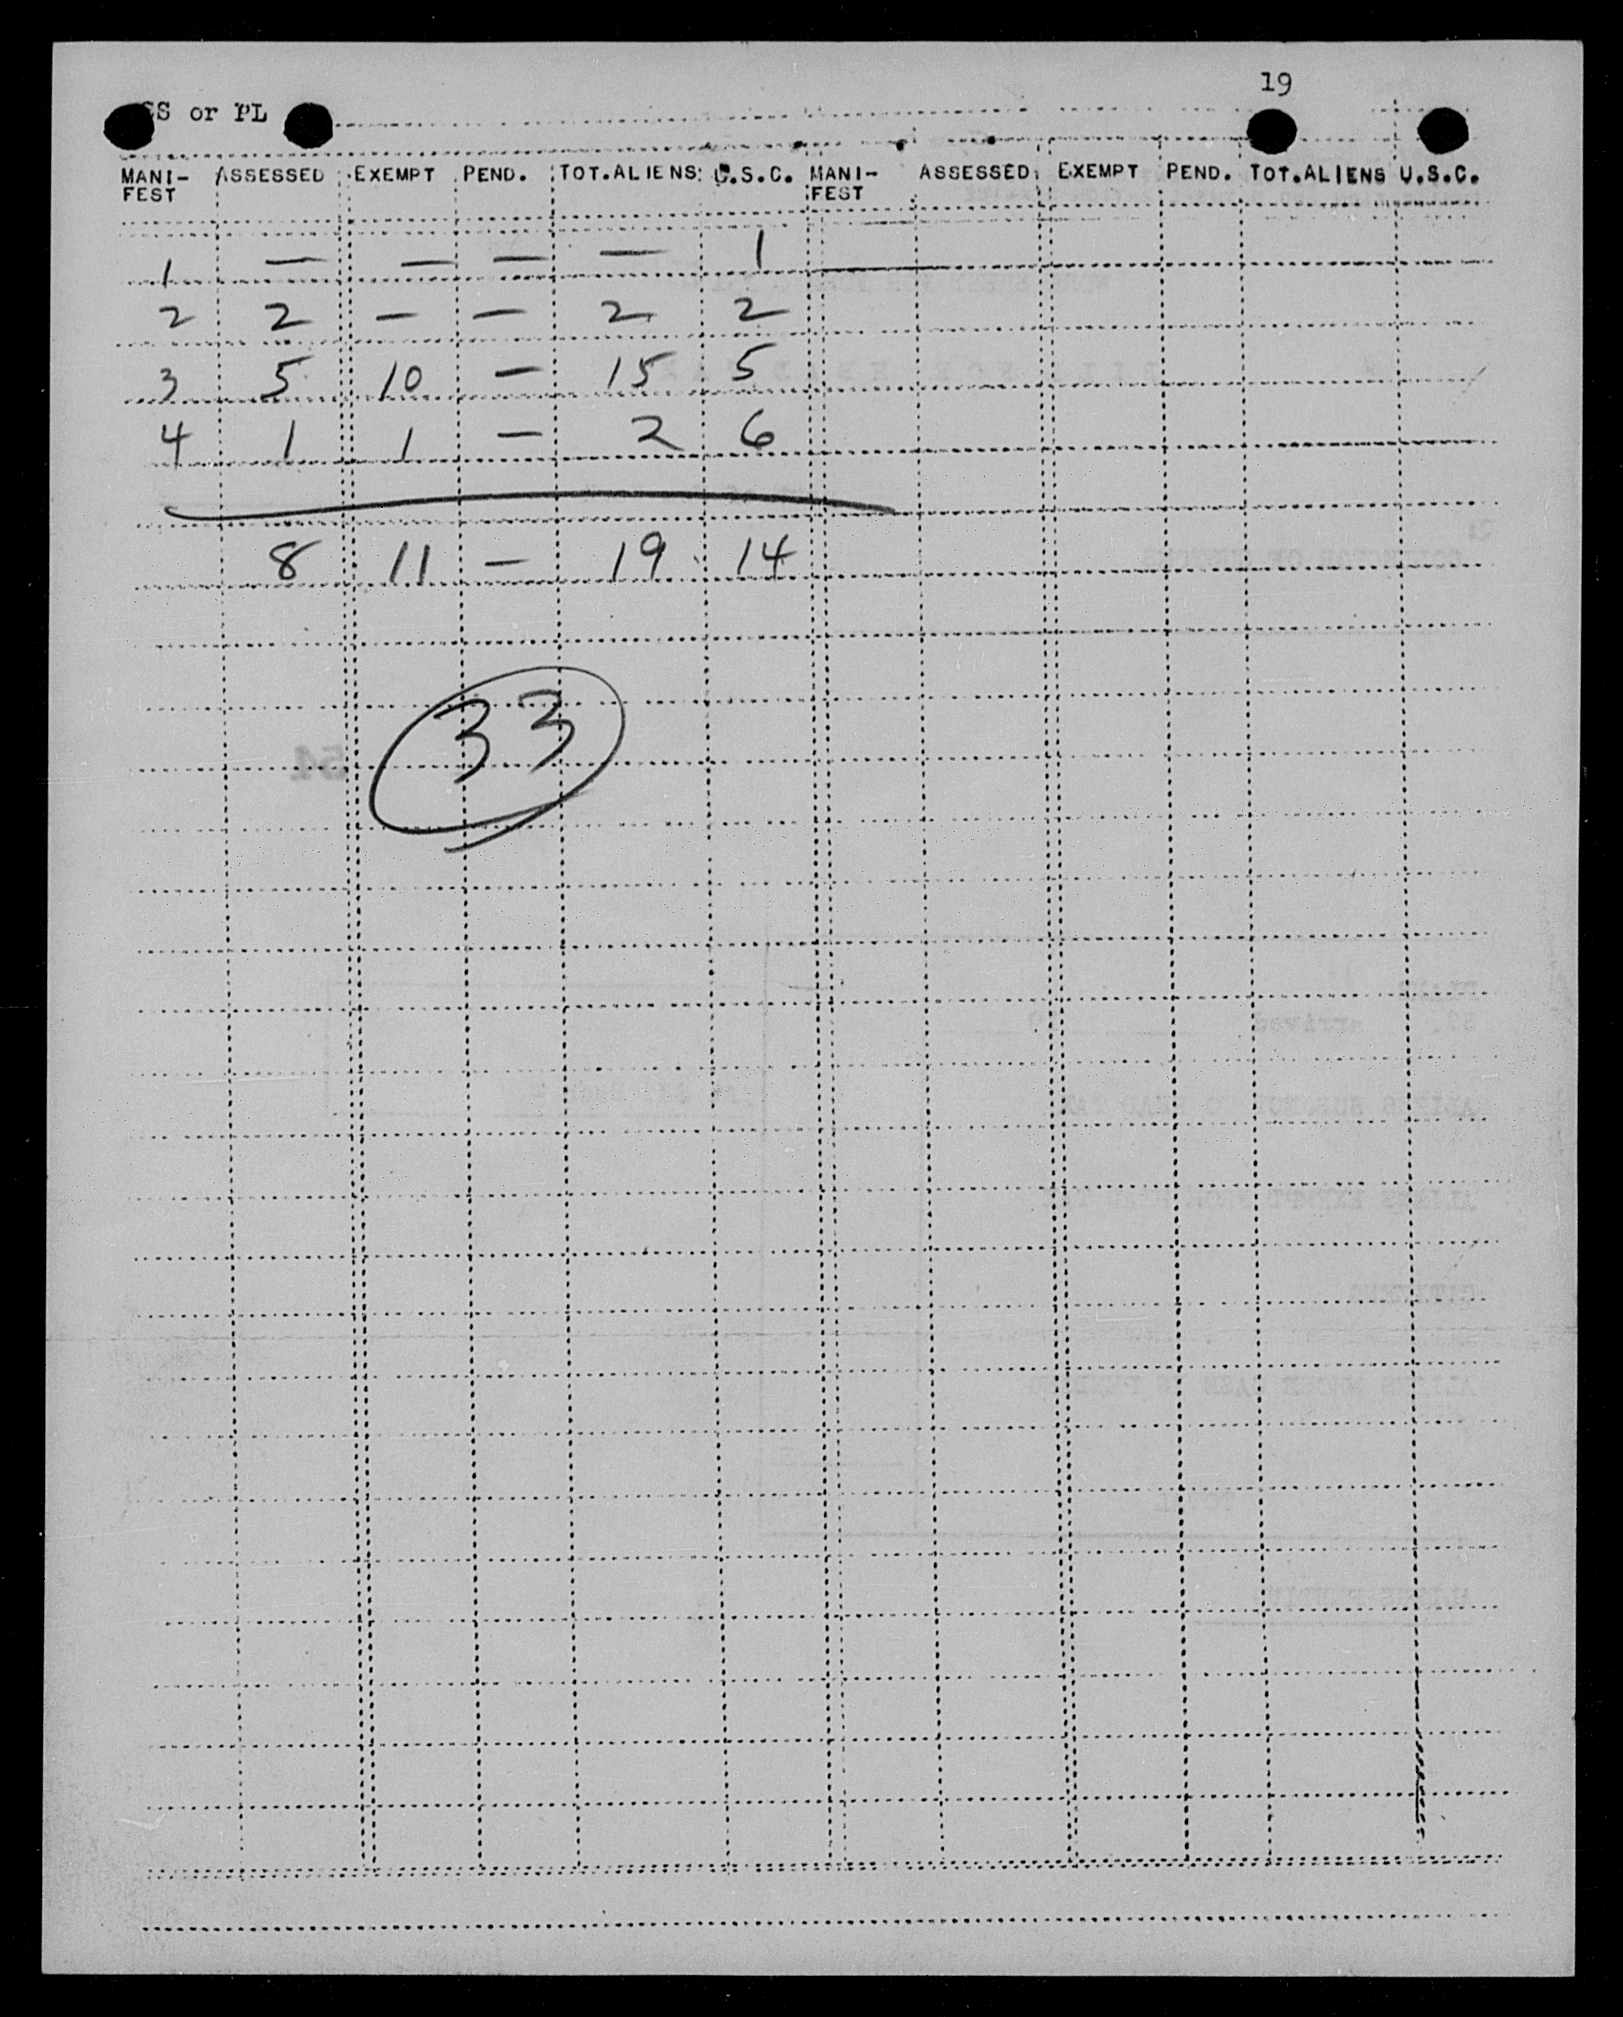 19
SS or PL
MANI-FEST ASSESSED EXEMPT PEND. TOT.ALIENS U.S.C. MANI-FEST ASSESSED EXEMPT PEND. TOT.ALIENS U.S.C.
1 — — — — 1
2 2 — — 2 2
3 5 10 — 15 5
4 1 1 — 2 6
8 11 — 19 14
33
54